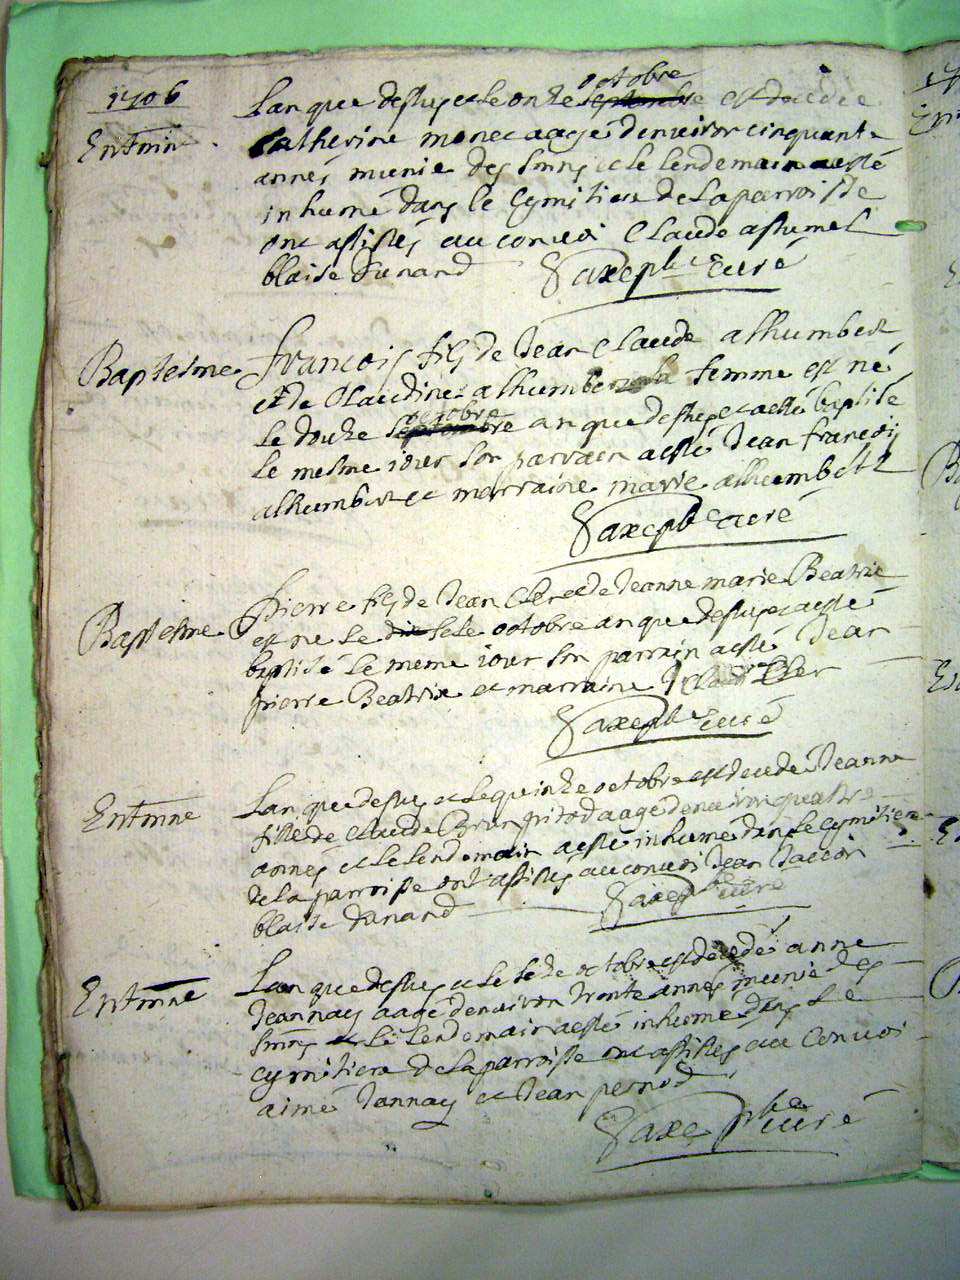 1706
Entmnt.
L'an que dessus et le onze septembre octobre est decedee
catherine monet aagé denviron cinquante
années munie des smns et le lendemain a esté
inhumé dans le Cymitiere de la parroisse
ont assistés au convoi Claude assumel
blaise dunand
Saxe pbre curé
Baptesme
françois fils de Jean Claude alhumbert
et de Claudine alhumbert sa femme est né
le douze septembre octobre an que dessus et a esté baptisé
le mesme iour son parrain a esté Jean françois
alhumbert et marraine marie alhumbert
Saxe pbre curé
Baptesme
pierre fils de Jean Cler et de Jeanne marie Beatrix
est né le dit le octobre an que dessus et a esté
baptisé le meme iour son parrain a esté Jean
pierre Beatrix et marraine Cler
Saxe pbre curé
Entmne
L'an que dessus et le quinze octobre est decedé Jeanne
fille de Claude Brun aagé denviron quatre
années et le lendemain a esté inhumé dans le Cymitiere
de la parroisse ont assistés au convoi Jean
blaise dunand
Saxe pbre curé
Entmne
L'an que dessus et le seze octobre est décedé anne
Jeannay aagé denviron trente années munie des
smns et le lendemain a esté inhumé dans le
cymitiere de la parroisse ont assistés au convoi
aimé Jannay et Jean pernod
Saxe pbre curé